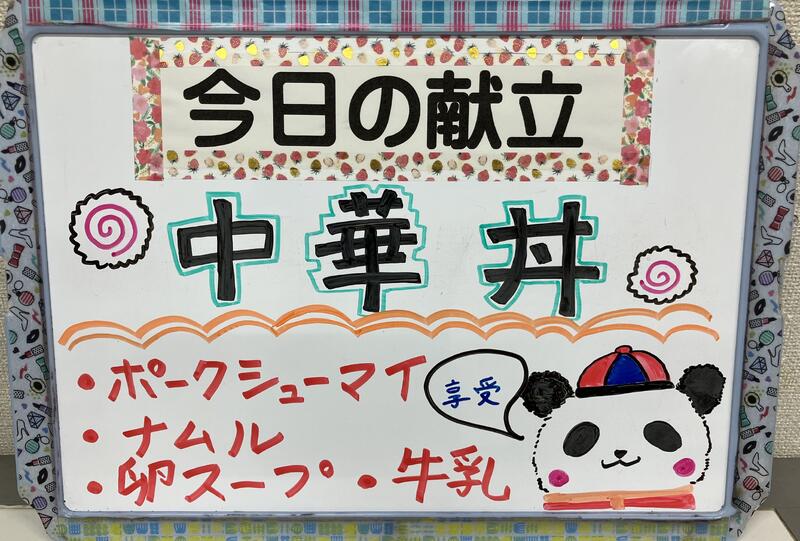 今日の献立
中華丼
・ポークシューマイ
享受
・ナムル
・卵スープ・牛乳